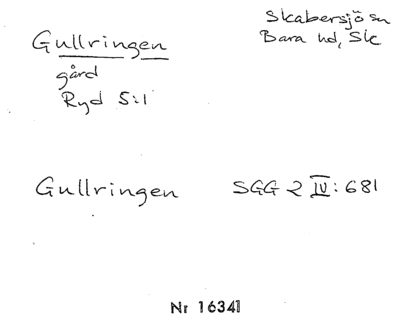 Gullringen
Skabersjö sn
Bara hd, Sk
gård
Ryd 5:1
Gullringen SGG 2 IV: 681
Nr 16341